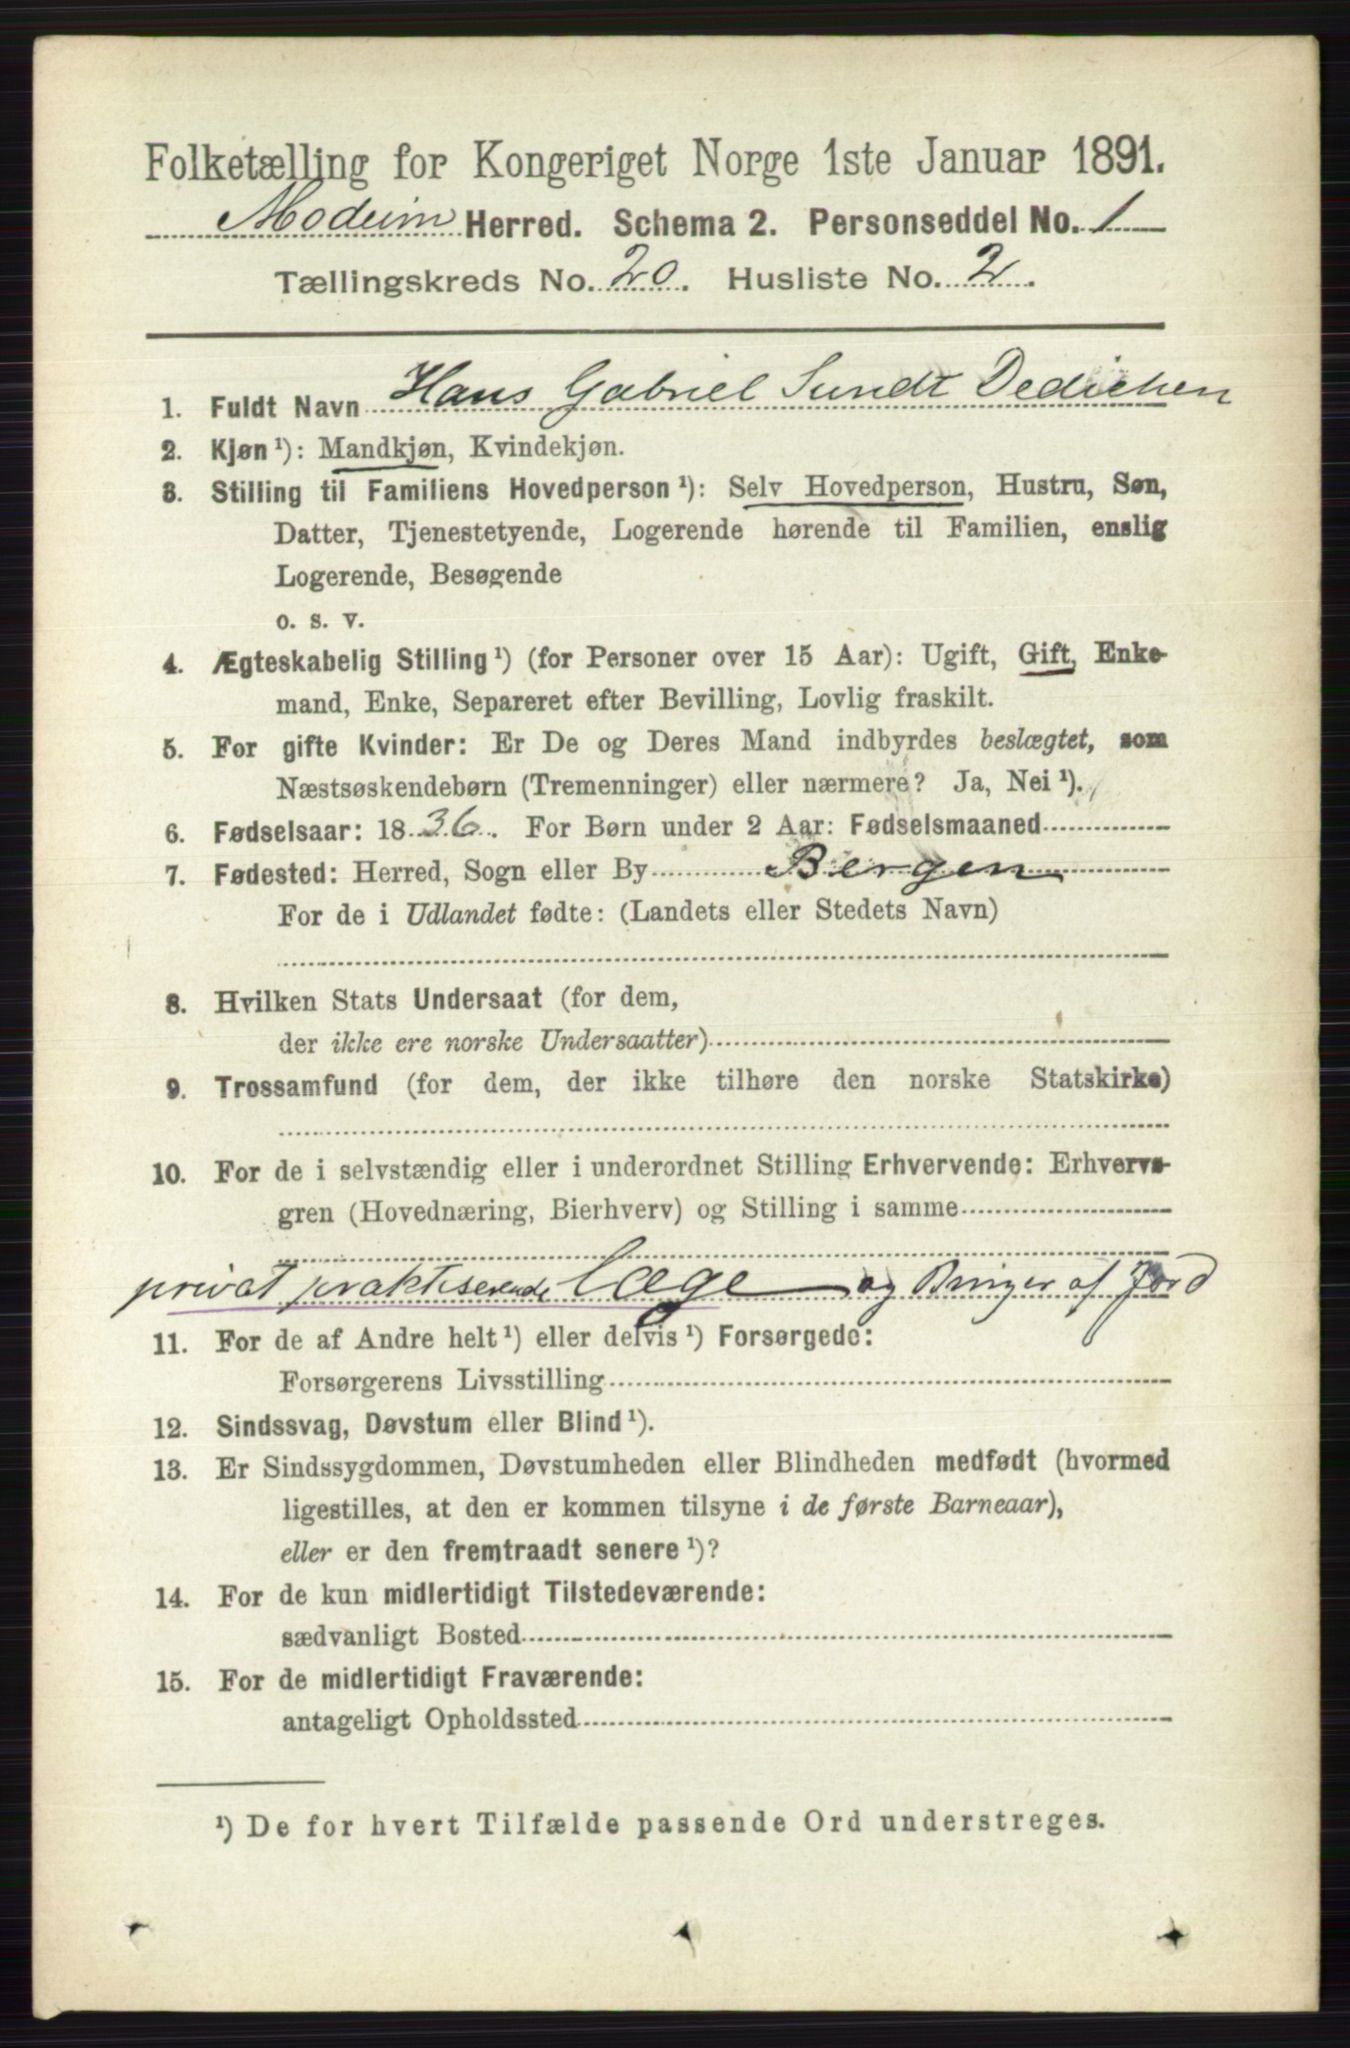 Folketælling for Kongeriget Norge 1ste Januar 1891.
Modum Herred. Schema 2. Personseddel No. 1
Tællingskreds No. 20. Husliste No. 2.
1. Fuldt Navn Hans Gabriel Sundt Dedichen
2. Kjøn ¹): Mandkjøn, Kvindekjøn.
3. Stilling til Familiens Hovedperson ¹): Selv Hovedperson, Hustru, Søn,
Datter, Tjenestetyende, Logerende hørende til Familien, enslig
Logerende, Besøgende
o. s. v.
4. Ægteskabelig Stilling ¹) (for Personer over 15 Aar): Ugift, Gift, Enke-
mand, Enke, Separeret efter Bevilling, Lovlig fraskilt.
5. For gifte Kvinder: Er De og Deres Mand indbyrdes beslægtet, som
Næstsøskendebørn (Tremenninger) eller nærmere? Ja, Nei ¹).
6. Fødselsaar: 1836. For Børn under 2 Aar: Fødselsmaaned
7. Fødested: Herred, Sogn eller By Bergen
For de i Udlandet fødte: (Landets eller Stedets Navn)
8. Hvilken Stats Undersaat (for dem,
der ikke ere norske Undersaatter)
9. Trossamfund (for dem, der ikke tilhøre den norske Statskirke)
10. For de i selvstændig eller i underordnet Stilling Erhvervende: Erhvervs-
gren (Hovednæring, Bierhverv) og Stilling i samme
privat praktiserende Læge og Bruger af Jord
11. For de af Andre helt ¹) eller delvis ¹) Forsørgede:
Forsørgerens Livsstilling
12. Sindssvag, Døvstum eller Blind ¹).
13. Er Sindssygdommen, Døvstumheden eller Blindheden medfødt (hvormed
ligestilles, at den er kommen tilsyne i de første Barneaar),
eller er den fremtraadt senere ¹)?
14. For de kun midlertidigt Tilstedeværende:
sædvanligt Bosted
15. For de midlertidigt Fraværende:
antageligt Opholdssted
¹) De for hvert Tilfælde passende Ord understreges.